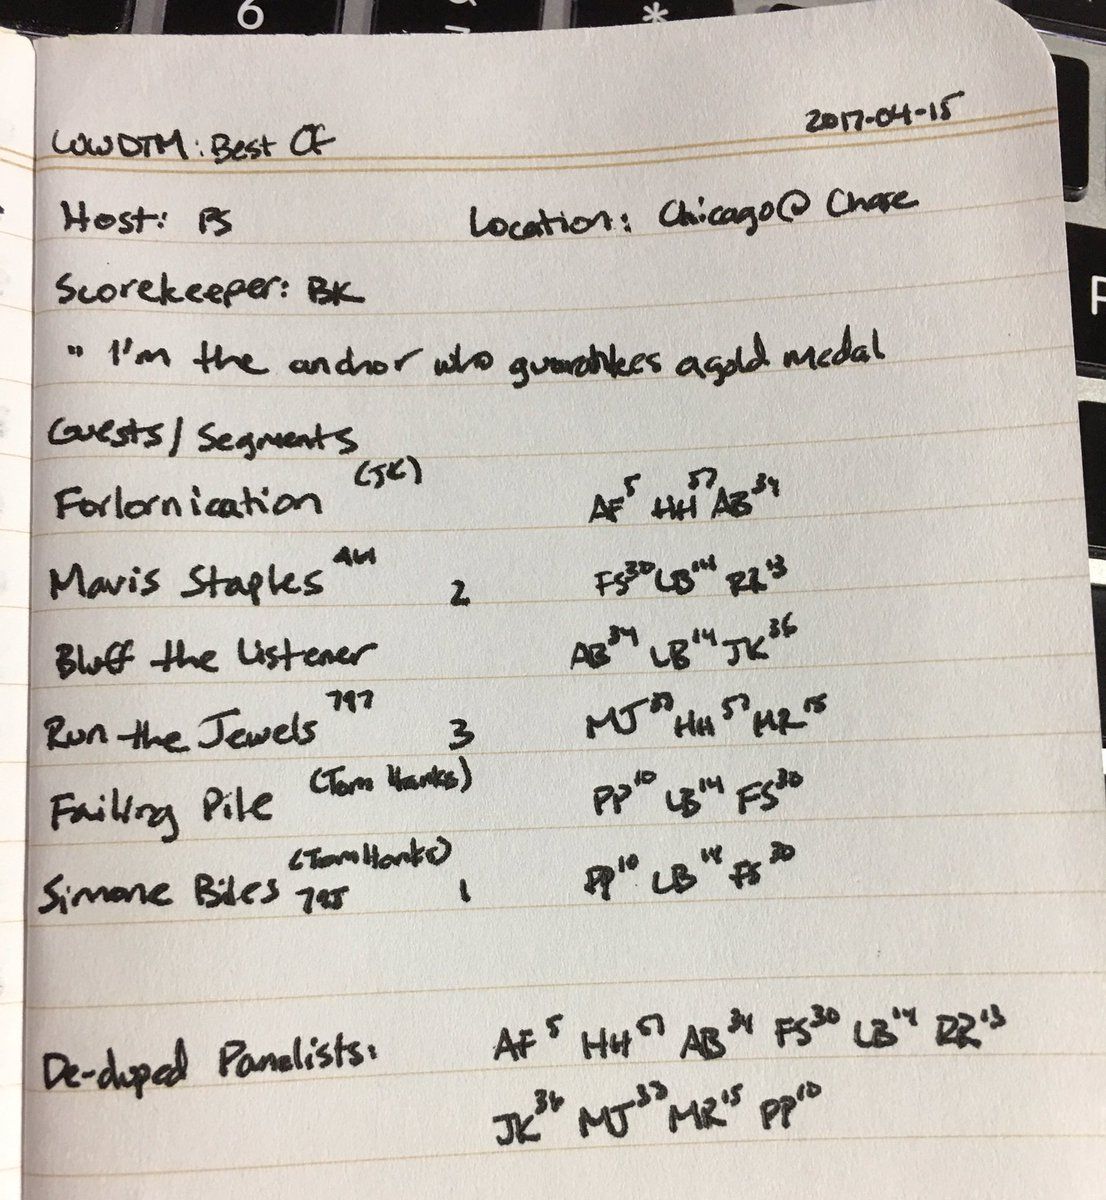 6
*
WWDTM: Best Of 2017-04-15
Host: PS Location: Chicago @ Chase
Scorekeeper: BK
" I'm the anchor who guarantees a gold medal
Guests / Segments
Forlornication (JK) AF 5 HH 57 AB 34
Mavis Staples 2 FS 30 LB 14 RR 13
Bluff the Listener AB 34 LB 14 JK 36
Run the Jewels 797 3 MJ HH 57 MR 15
Failing Pile (Tom Hanks) PP 10 LB 14 FS 30
Simone Biles (Tom Hanks) 795 1 PP 10 LB 14 FS 30
De-duped Panelists: AF 5 HH 57 AB 34 FS 30 LB 14 RR 13
JK 36 MJ MR 15 PP 10